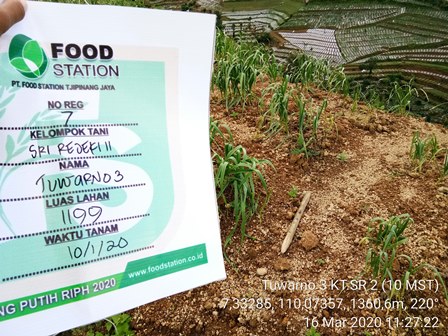 FOOD
STATION
PT. FOOD STATION TJIPINANG JAYA
NO REG
7
KELOMPOK TANI
SRI REJEKI II
NAMA
TUWARNO 3
LUAS LAHAN
1199
WAKTU TANAM
10/1/20
www.foodstation.co.id
NG PUTIH RIPH 2020
Tuwarno 3 KT.SR 2 (10 MST)
-7,33285, 110,07357, 1360,6m, 220°
16 Mar 2020 11:27:22